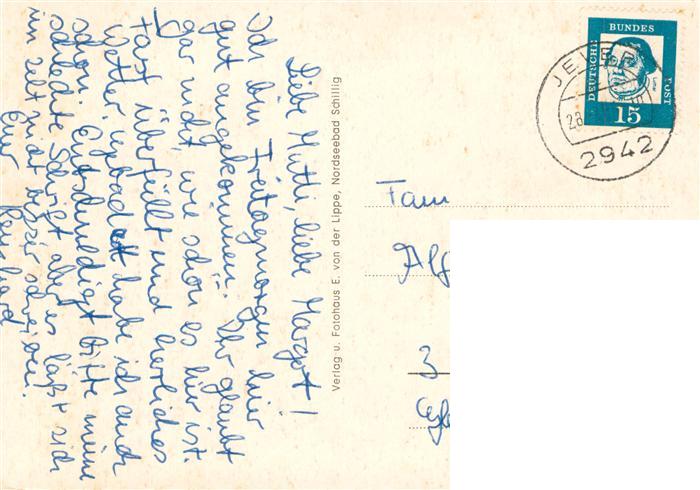 Liebe Mutti, liebe Margot!
Ich bin Freitagmorgen hier
gut angekommen. Ihr glaubt
gar nicht, wie schön es hier ist.
Fast überfüllt und herrliches
Wetter. gebadet habe ich auch
schon. Entschuldigt bitte meine
schlechte Schrift aber es läßt sich
im Zelt nicht besser schreiben.
Euer
Reinhard
Verlag u. Fotohaus E. von der Lippe, Nordseebad Schillig
DEUTSCHE BUNDES POST
15
JEVER
28
2942
Fam
Alf
3